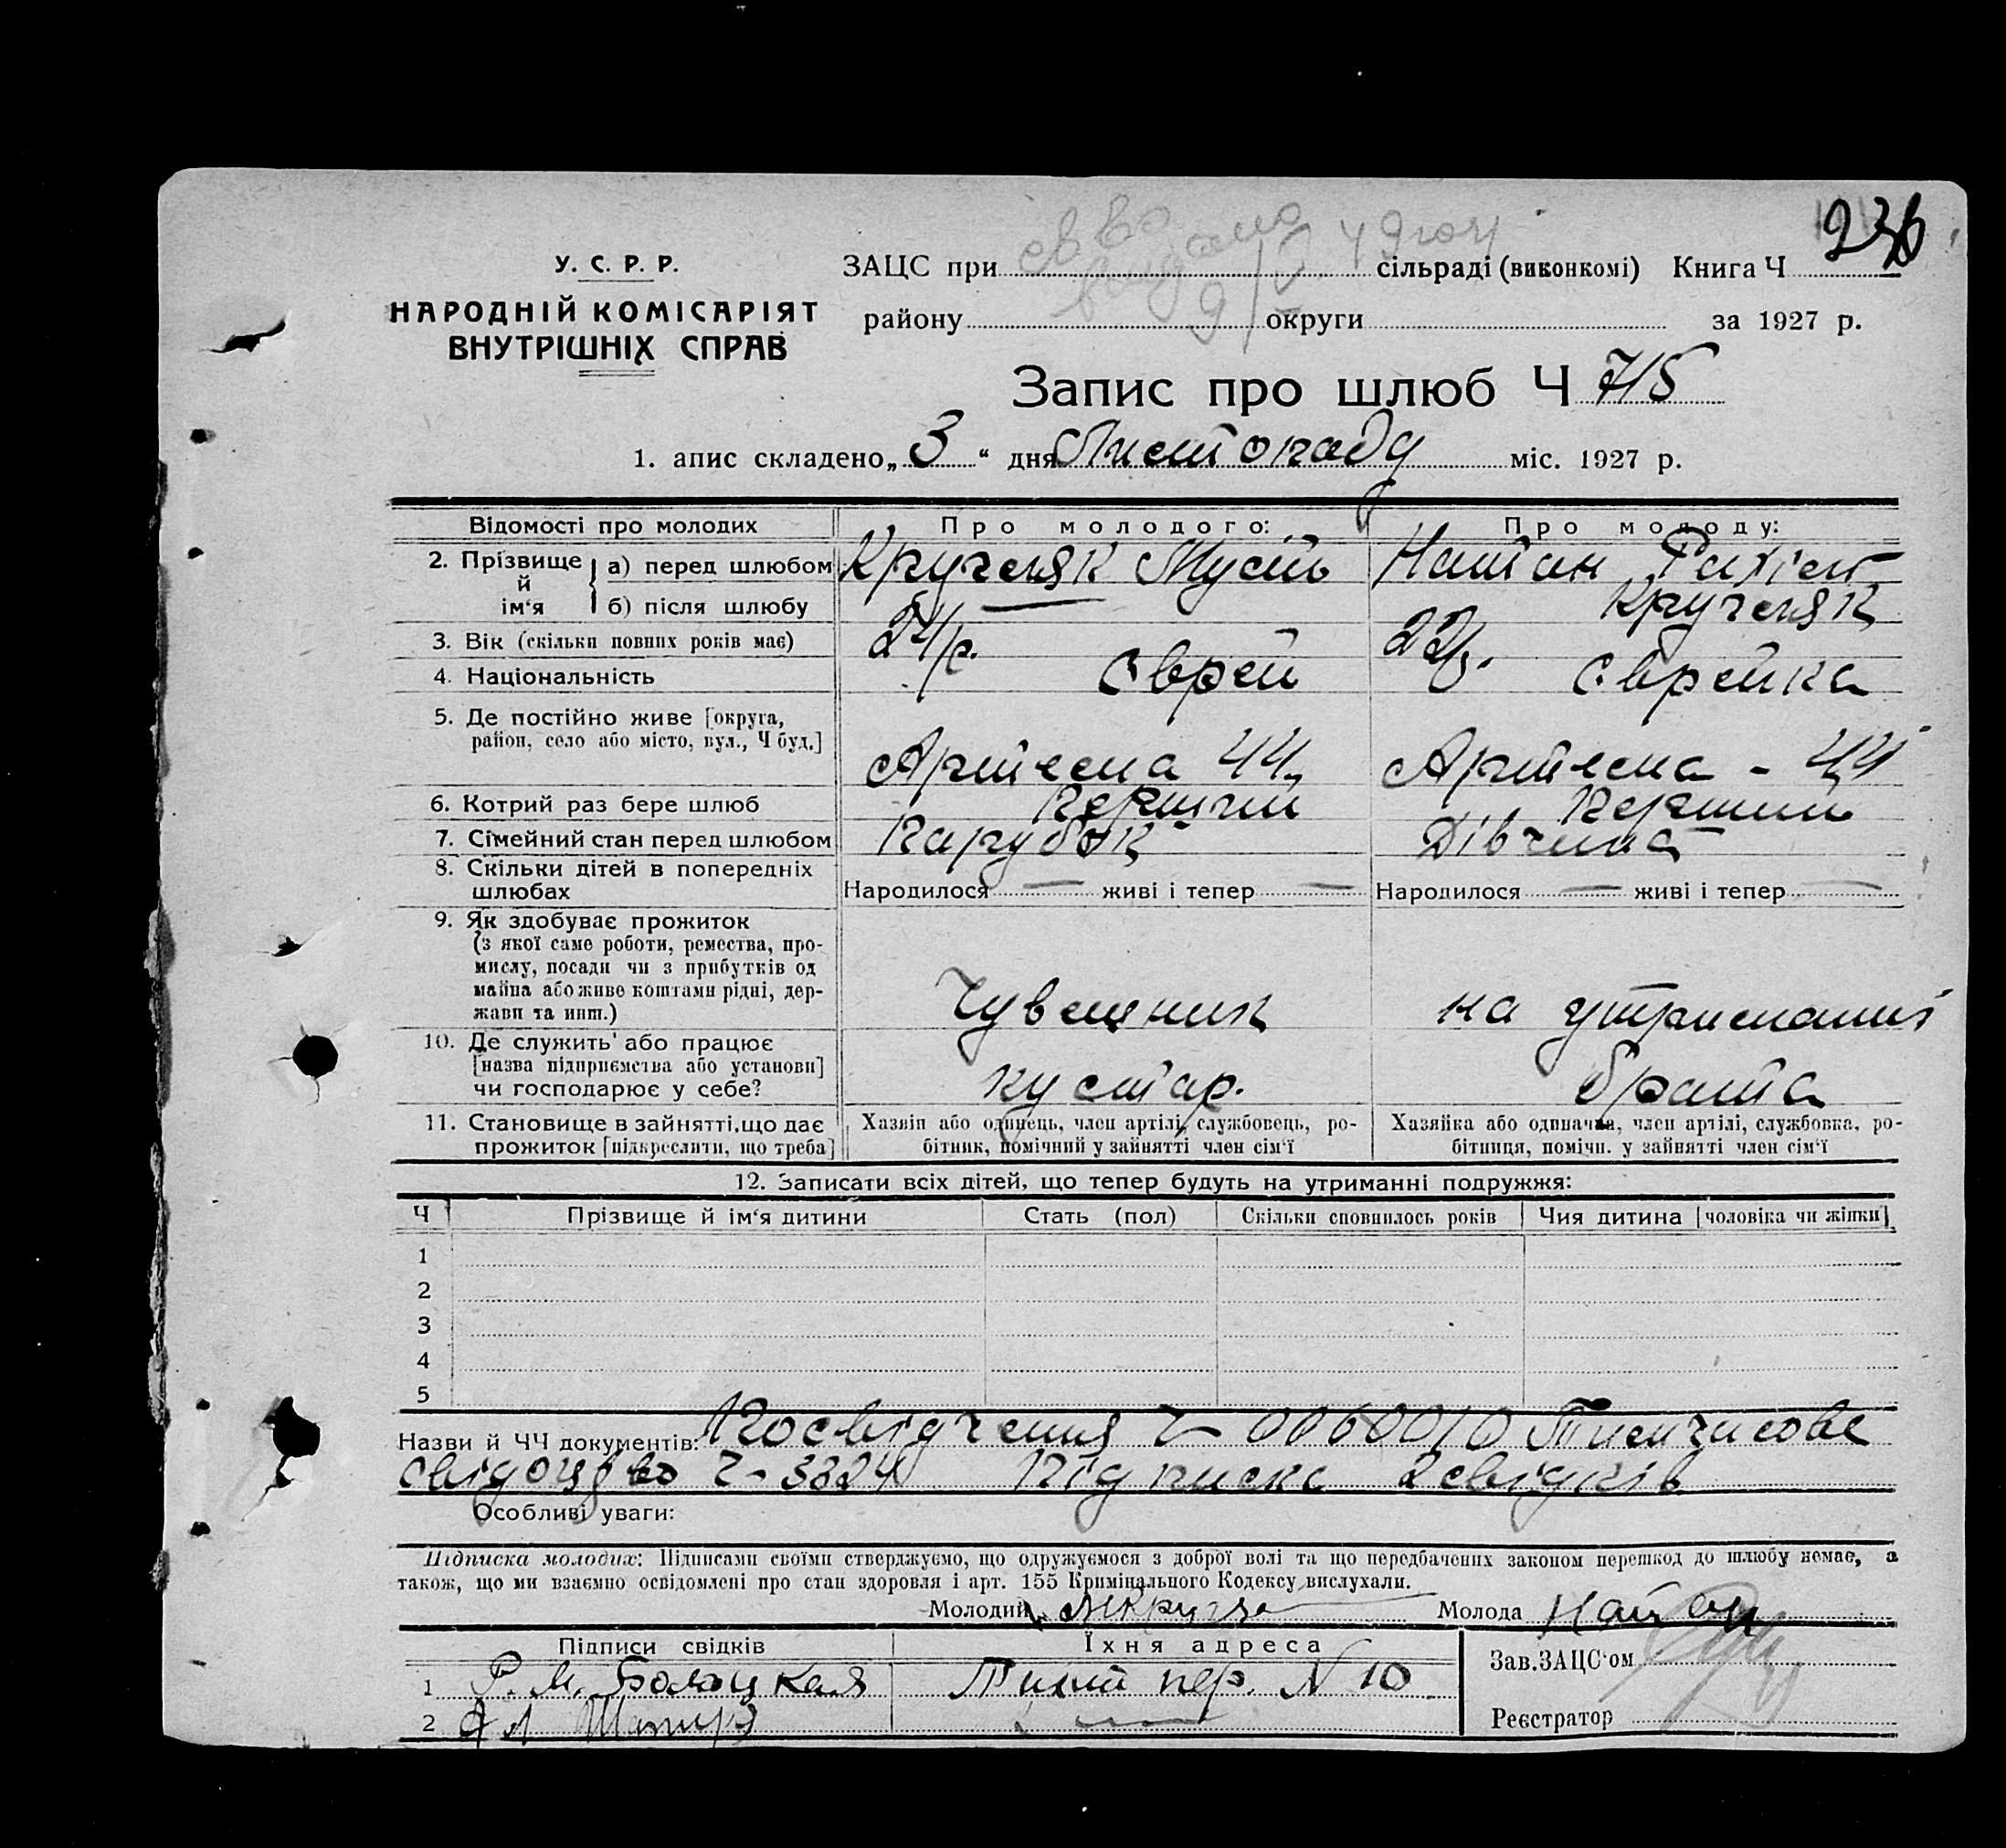 236
У. С. Р. Р.
НАРОДНІЙ КОМІСАРІЯТ
ВНУТРІШНІХ СПРАВ
ЗАЦС при сільраді (виконкомі) Книга Ч
району округи за 1927 р.
Запис про шлюб Ч 715
1. апис складено „ 3 “ дня Листопаду міс. 1927 р.
Відомості про молодих
Про молодого:
Про молоду:
2. Прізвище й ім‘я
а) перед шлюбом
Кручеляк Мусій
Натан
б) після шлюбу
Кручеляк
3. Вік (скільки повних років має)
24 р.
22 р.
4. Національність
Єврей
Єврейка
5. Де постійно живе [округа,
район, село або місто, вул., Ч буд.]
Артема 44
Артема - 44
6. Котрий раз бере шлюб
Перший
Перший
7. Сімейний стан перед шлюбом
Парубок
Дівчина
8. Скільки дітей в попередніх
шлюбах
Народилося — живі і тепер —
Народилося — живі і тепер —
9. Як здобуває прожиток
(з якої саме роботи, ремества, про-
мислу, посади чи з прибутків од
майна або живе коштами рідні, дер-
жави та инш.)
на утриманні
10. Де служить або працює
[назва підприємства або установи]
чи господарює у себе?
кустар.
брата
11. Становище в зайнятті, що дає
прожиток [підкреслити, що треба]
Хазяїн або одинець, член артілі, службовець, ро-
бітник, помічний у зайнятті член сім‘ї
Хазяйка або одиначка, член артілі, службовка, ро-
бітниця, помічн. у зайнятті член сім‘ї
12. Записати всіх дітей, що тепер будуть на утриманні подружжя:
Ч Прізвище й ім‘я дитини Стать (пол) Скільки сповнилось років Чия дитина [чоловіка чи жінки]
1
2
3
4
5
Назви й ЧЧ документів: Посвідчення Ч- 0060010 Тимчасове
свідоцтво Ч- 3324 Підписка 2 свідків
Особливі уваги:
Підписка молодих: Підписами своїми стверджуємо, що одружуємося з доброї волі та що передбачених законом перешкод до шлюбу немає, а
також, що ми взаємно освідомлені про стан здоровля і арт. 155 Кримінального Кодексу вислухали.
Молодий Молода Натан
Підписи свідків
Їхня адреса
Зав.ЗАЦС‘ом
1 Р. М. Болоцкая пер. N 10
2 Шапиро
Реєстратор